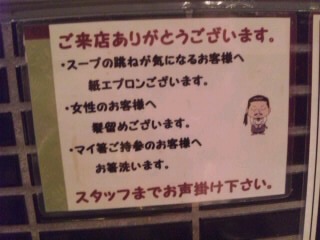 ご来店ありがとうございます。
・スープの跳ねが気になるお客様へ
紙エプロンございます。
・女性のお客様へ
髪留めございます。
・マイ箸ご持参のお客様へ
お箸洗います。
スタッフまでお声掛け下さい。